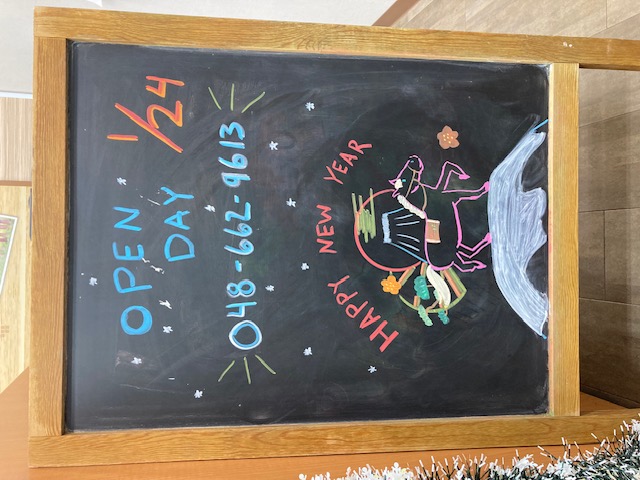 OPEN
DAY
1/24
048-662-9613
HAPPY NEW YEAR